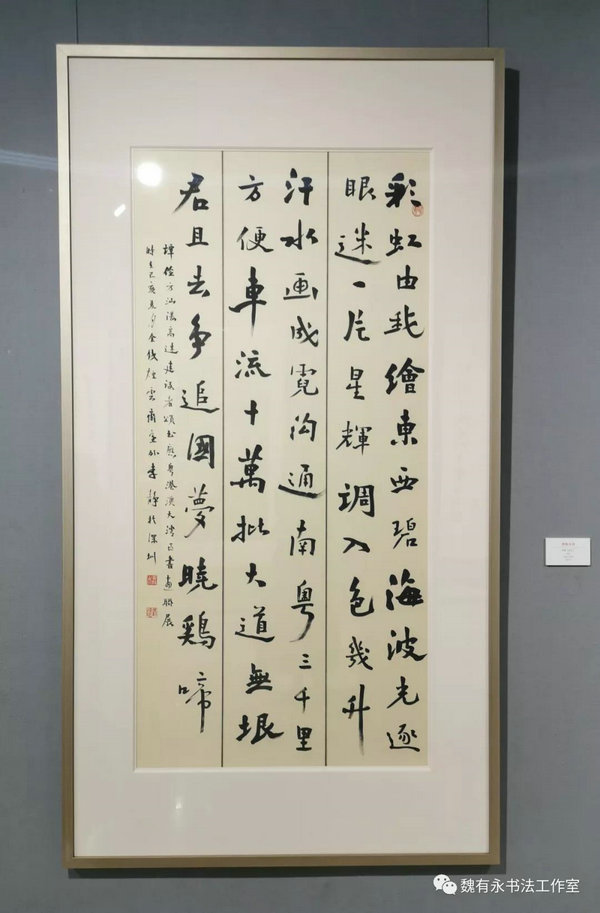 彩虹由我繪東西碧海波光逐
眼迷一片星輝調入色幾升
汗水画成霓沟通南粤三千里
方便車流十萬批大道無垠
君且去争追國夢曉鷄啼
高速建設者頌書應粤港澳大湾区書畫聯展
時在己亥夏月雲齋李靜於深圳
魏有永书法工作室